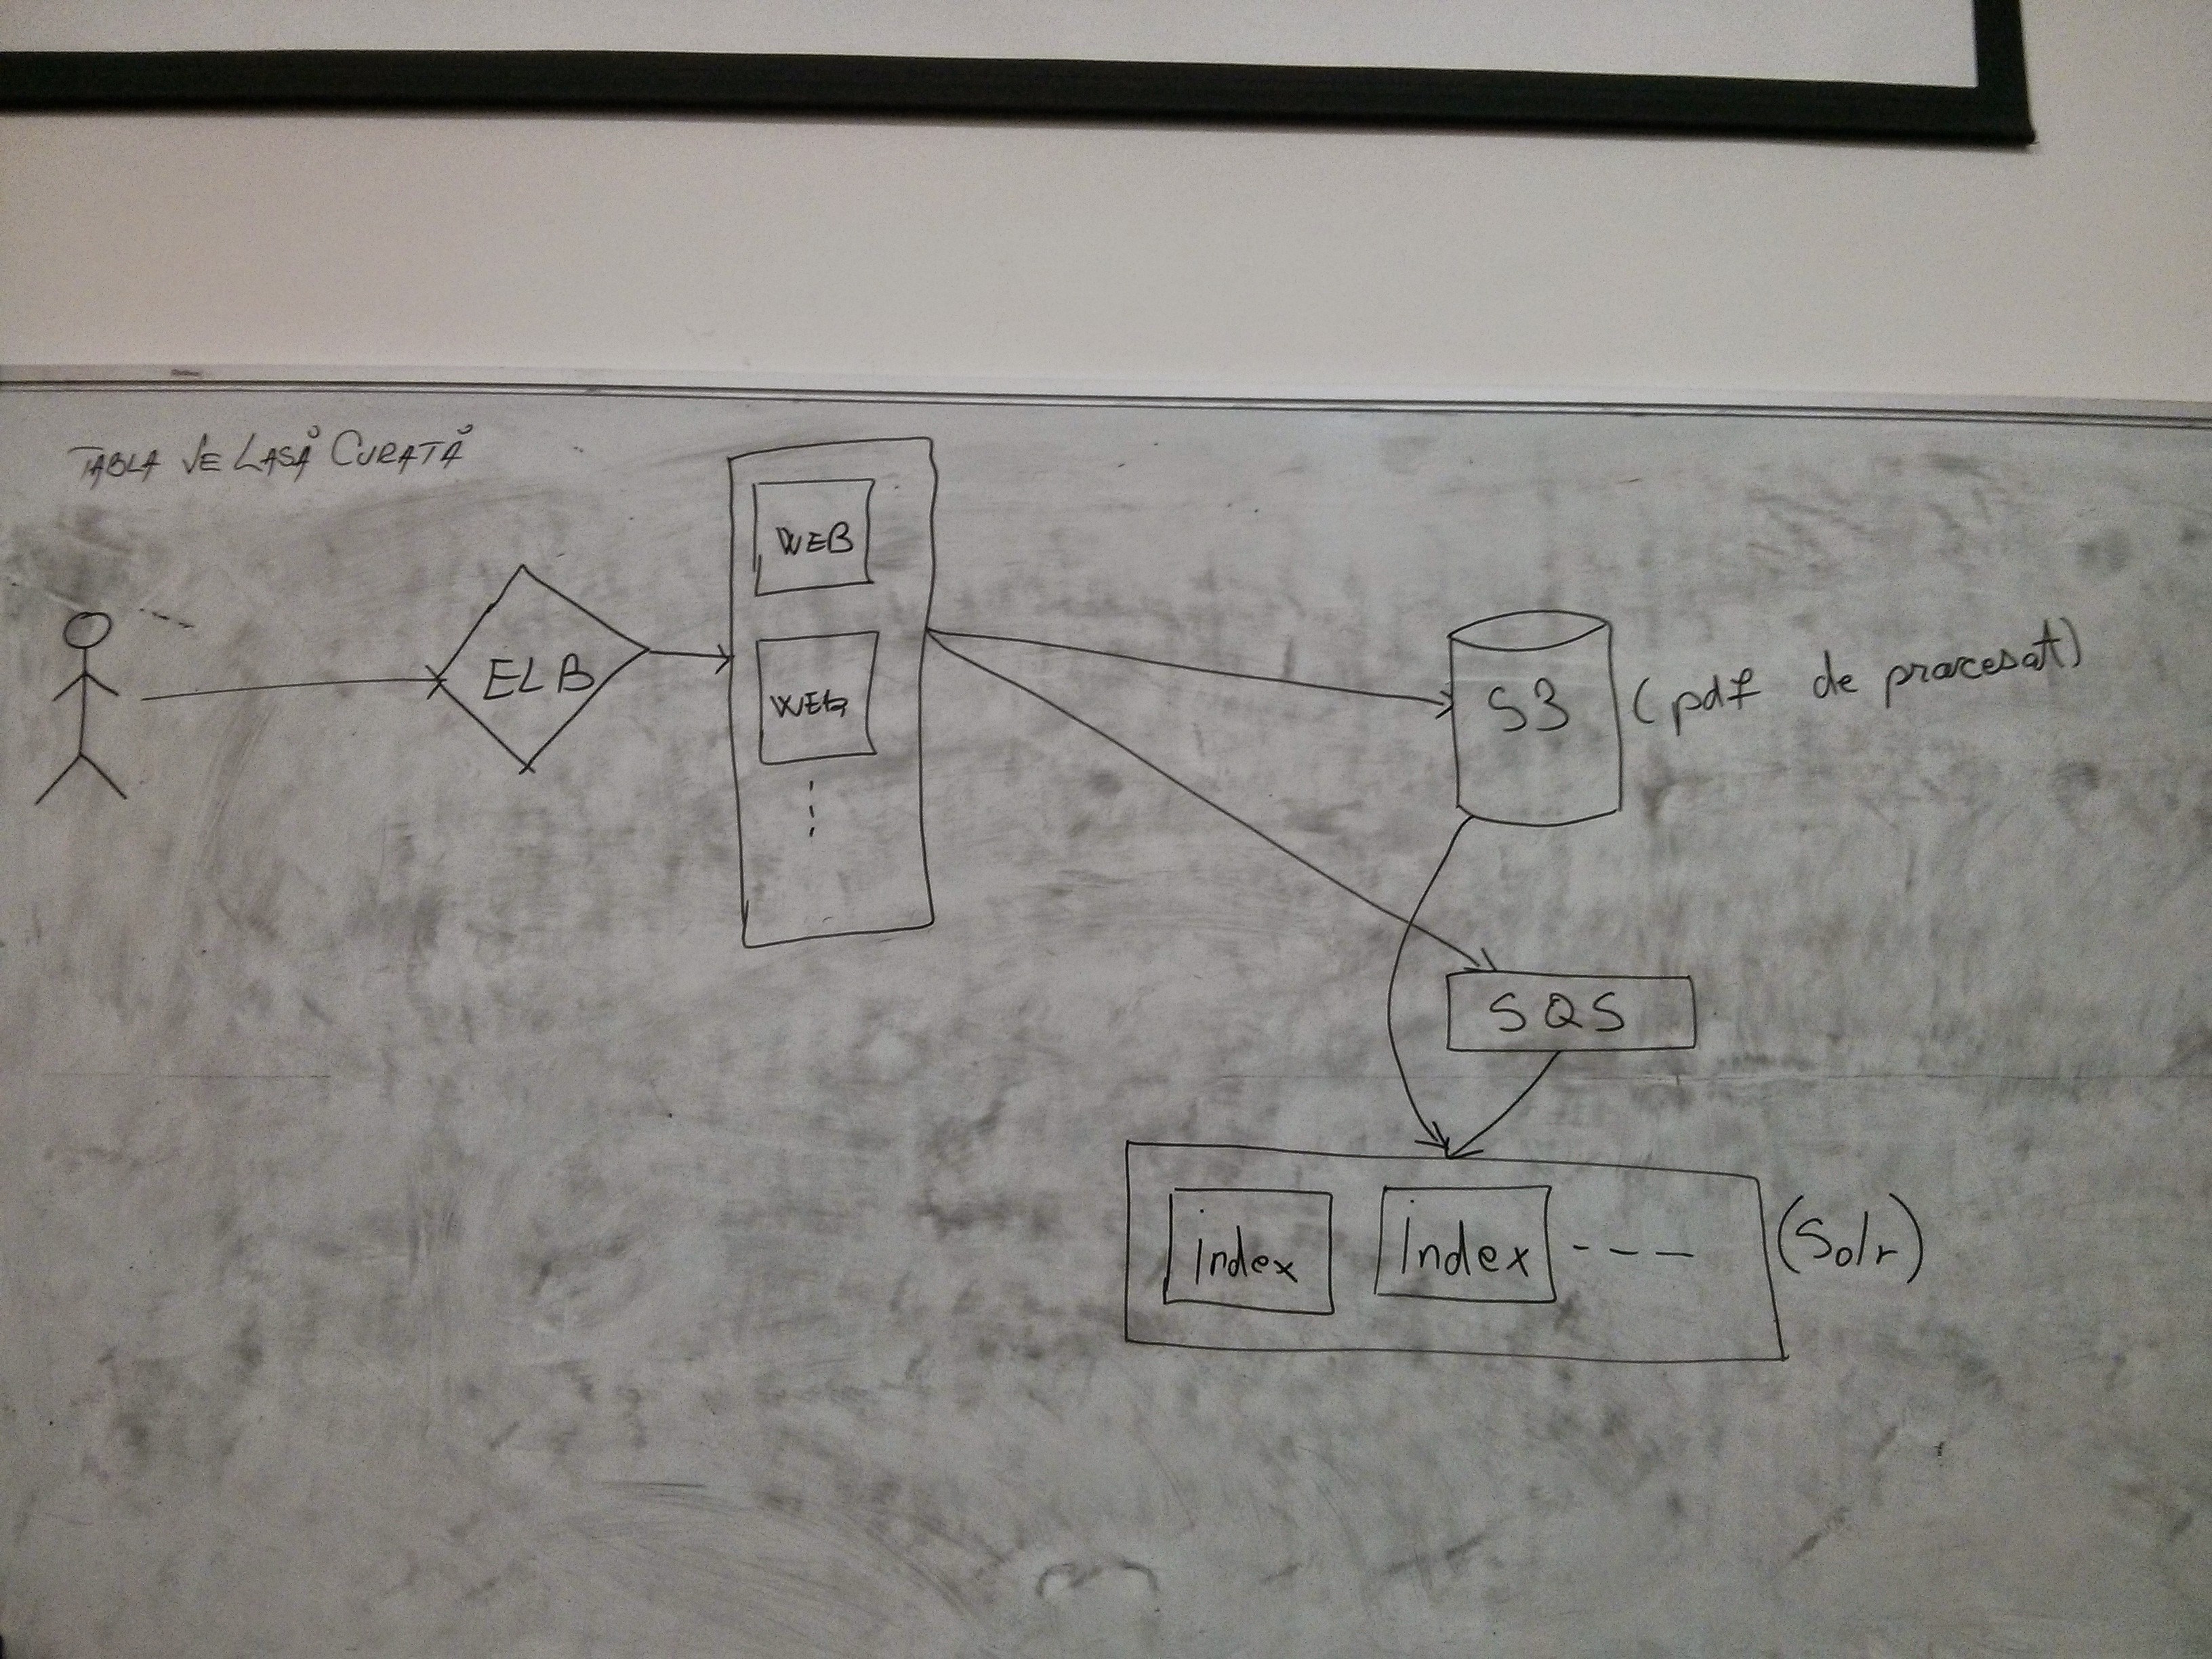 TABLA SE LASĂ CURATĂ
WEB
ELB
WEB
S3 (pdf de procesat)
SQS
index
index
(Solr)